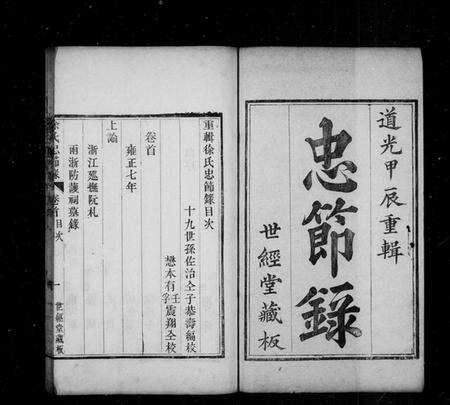 道光甲辰重輯
忠節錄
世經堂藏板
重輯徐氏忠節錄目次
十九世孫佐治仝子恭壽編校
懋本有壬震翔仝校
卷首
雍正七年
上諭
浙江巡撫阮札
兩浙防護祠墓錄
徐氏忠節錄
卷首目次
一
世經堂藏板